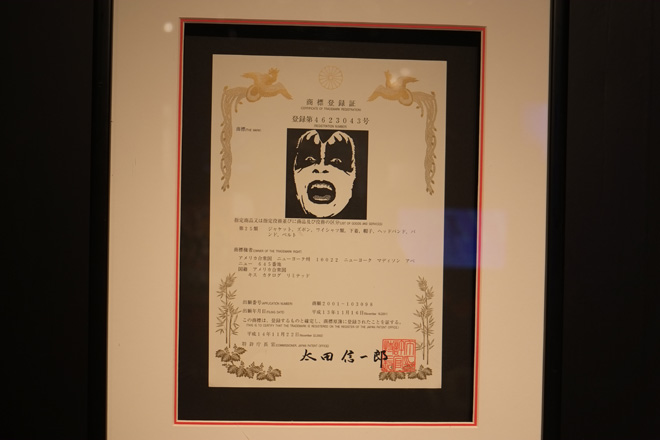 商標登録証
(CERTIFICATE OF TRADEMARK REGISTRATION)
登録第4623043号
(REGISTRATION NUMBER)
商標(THE MARK)
指定商品又は指定役務並びに商品及び役務の区分(LIST OF GOODS AND SERVICES)
第25類 ジャケット,ズボン,ワイシャツ類,下着,帽子,ヘッドバンド,バンド,ベルト
商標権者(OWNER OF THE TRADEMARK RIGHT)
アメリカ合衆国 ニューヨーク州 10022 ニューヨーク マディソン アベ
ニュー 645番地
国籍 アメリカ合衆国
キス カタログ リミテッド
出願番号(APPLICATION NUMBER) 商願2001-103098
出願年月日(FILING DATE) 平成13年11月16日
この商標は、登録するものと確定し、商標原簿に登録されたことを証する。
(THIS IS TO CERTIFY THAT THE TRADEMARK IS REGISTERED ON THE REGISTER OF THE JAPAN PATENT OFFICE.)
平成14年11月22日
特許庁長官(COMMISSIONER, JAPAN PATENT OFFICE)
太田信一郎